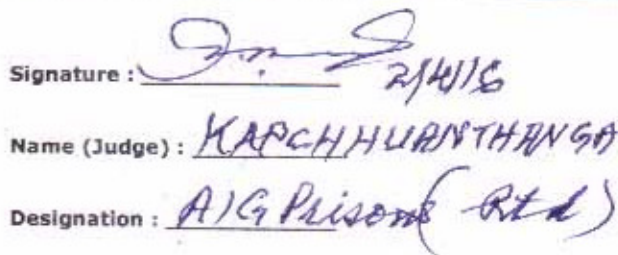 Signature : 2/4/16
Name (Judge) : KAPCHHUANTHANGA
Designation : AIG Prisons (Rtd)